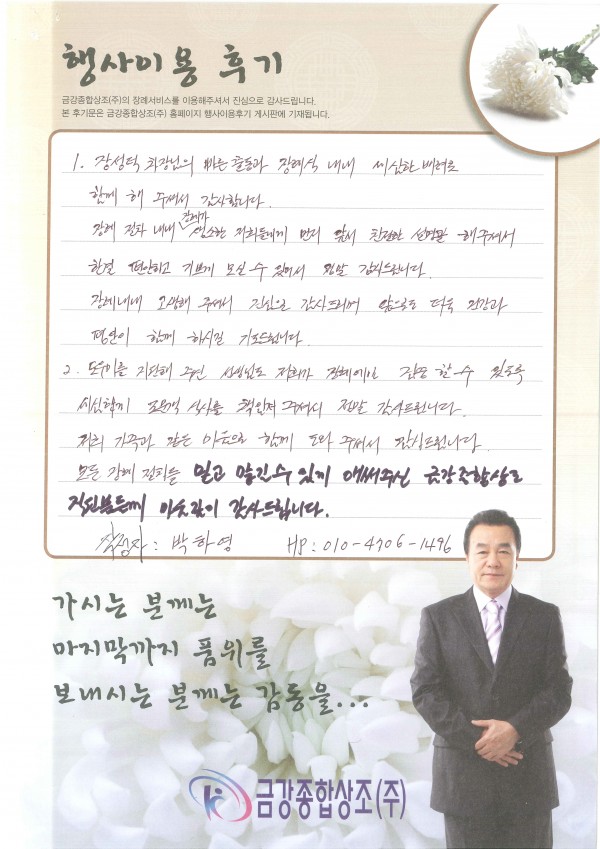 행사이용 후기
금강종합상조(주)의 장례서비스를 이용해주셔서 진심으로 감사드립니다.
본 후기문은 금강종합상조(주) 홈페이지 행사이용후기 게시판에 기재됩니다.
1. 장성덕 화장님의 빠른 출동과 장례식 내내 세심한 배려로
함께 해 주셔서 감사합니다.
장례 절차 내내 장례가 생소한 저희들에게 먼저 앞서 친절한 설명을 해주셔서
한결 편안하고 기쁘게 모실 수 있어서 정말 감사드립니다.
장례내내 고생해 주셔서 진심으로 감사드리며 앞으로도 더욱 건강과
평안이 함께 하시길 기도드립니다.
2. 도우미를 지원해 주신 선생님도 저희가 장례에만 집중 할 수 있도록
세심하게 조문객 식사를 책임져 주셔서 정말 감사드립니다.
저희 가족과 같은 마음으로 함께 도와 주셔서 감사드립니다.
모든 장례 절차를 믿고 맡길 수 있게 애써주신 금강종합상조
직원분들께 마음깊이 감사드립니다.
작성자 : 박하영 HP : 010-4906-1496
가시는 분께는
마지막까지 품위를
보내시는 분께는 감동을...
금강종합상조(주)